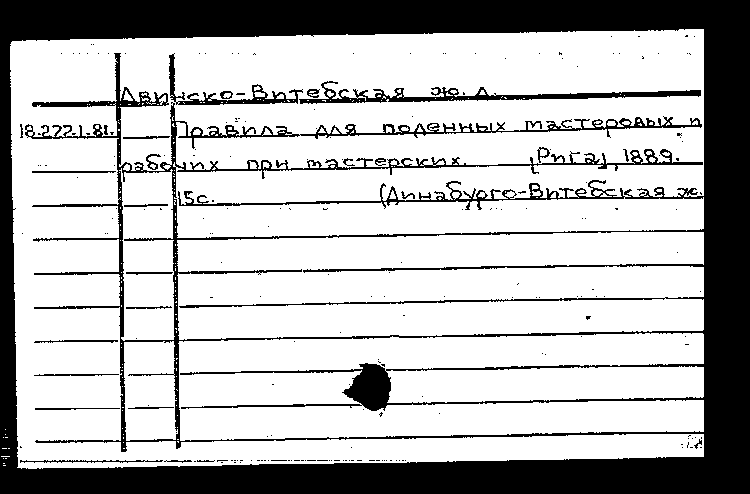 Двинско-Витебская ж. д.
18.272.1.81. Правила для поденных мастеровых и
рабочих при мастерских. [Рига], 1889.
15с. (Динабурго-Витебская ж.